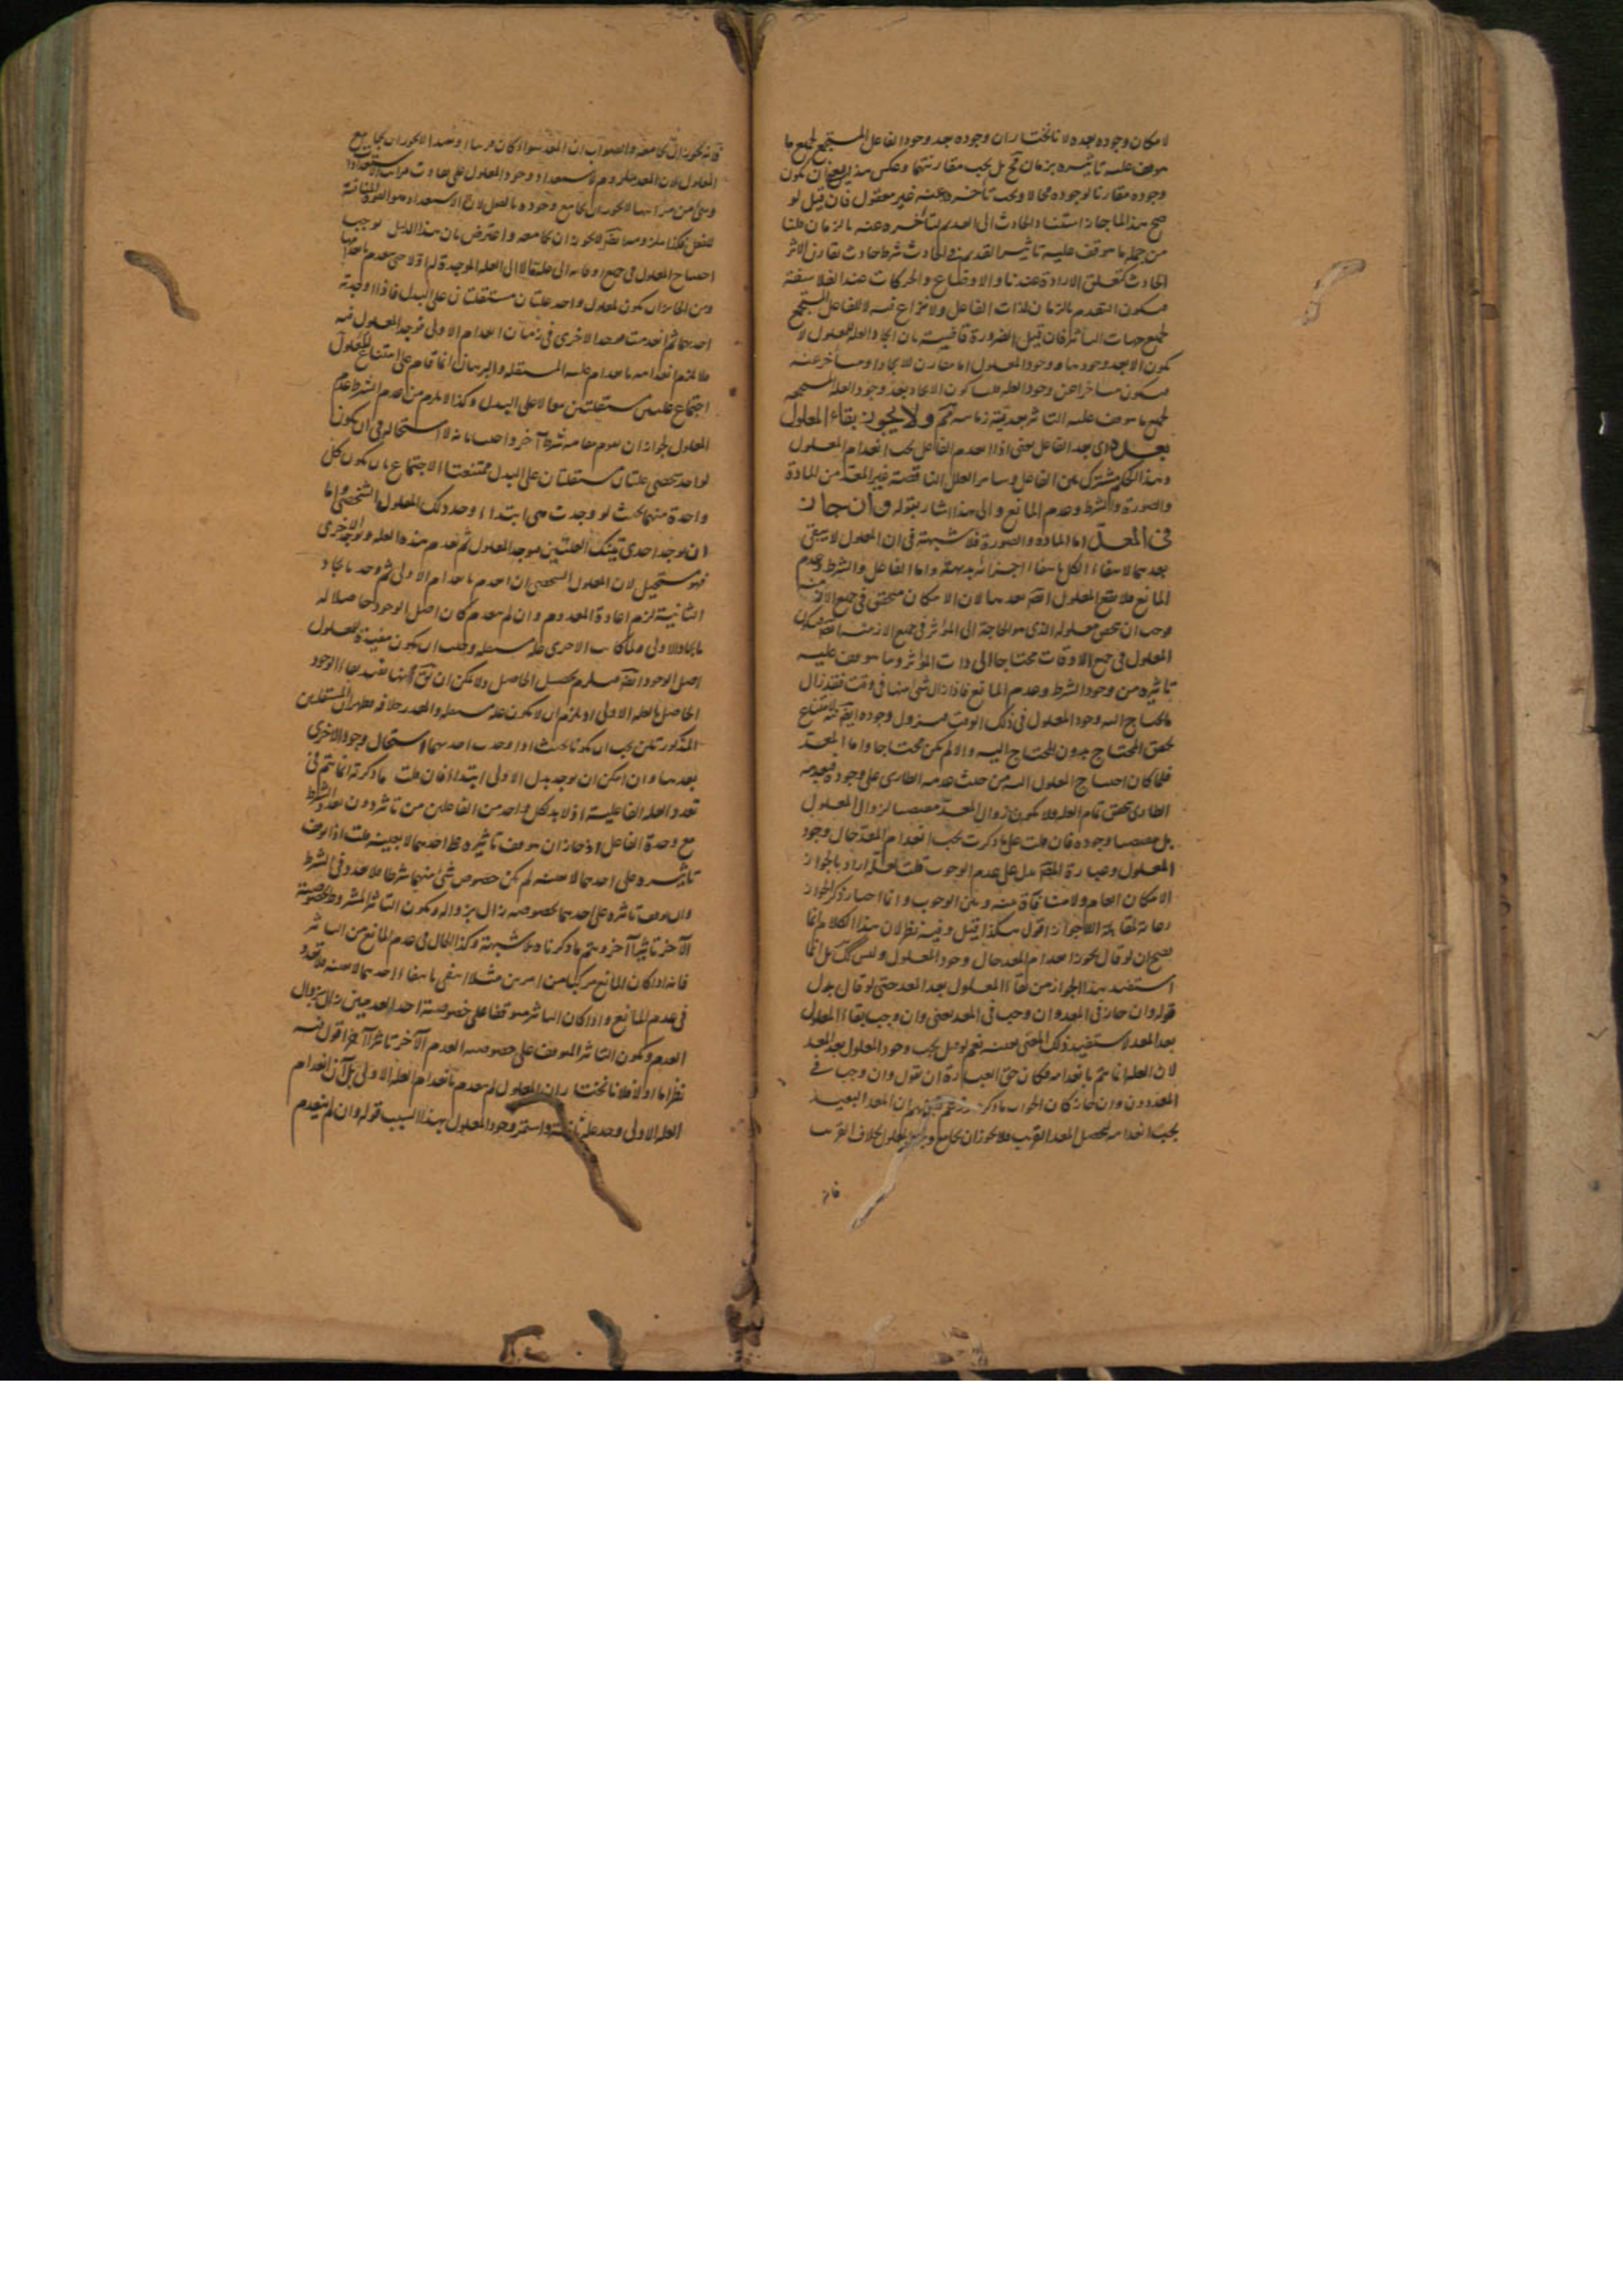 لامكان وجوده بعده لانا نختار ان وجوده بعد وجود الفاعل المستجمع لجميع ما
يتوقف عليه تاثيره بزمان مح بل يجب مقارنتهما وعكس هذا يعنى ان يكون
وجوده مقارنا لوجوده محالا ويجب تأخره عنه غير معقول فان قيل لو
صح هذا لما جاز استناد الحادث الى القديم لتأخره عنه بالزمان قلنا
من جملة ما يتوقف عليه تاثير القديم فى الحادث شرط حادث يقارن الاثر
الحادث كتعلق الارادة عندنا والاوضاع والحركات عند الفلاسفة
فيكون التقدم بالزمان لذات الفاعل ولا نزاع فيه لا للفاعل المستجمع
لجميع جهات التأثير فان قيل الضرورة قاضية بان ايجاد العلة للمعلول لا
يكون الا بعد وجودها ووجود المعلول اما مقارن للايجاد او متأخر عنه
فيكون متأخرا عن وجود العلة قلنا كون الايجاد بعد وجود العلة المستجمعة
لجميع ما يتوقف عليه التاثير بعدية زمانية مم ولا يجوز بقاء المعلول
بعده اى بعد الفاعل يعنى اذا انعدم الفاعل يجب انعدام المعلول
وهذا الحكم مشترك بين الفاعل وسائر العلل الناقصة غير المعد من المادة
والصورة والشرط وعدم المانع والى هذا اشار بقوله وان جاز
فى المعد اما المادة والصورة فلا شبهة فى ان المعلول لا يبقى
بعدهما لانتفاء الكل بانتفاء اجزائه بديهة واما الفاعل والشرط وعدم
المانع فلا يبقى المعلول ايض بعدها لان الامكان متحقق فى جميع الازمنة
المعلول فى جميع الاوقات محتاجا الى ذات المؤثر وما يتوقف عليه
تاثيره من وجود الشرط وعدم المانع فاذا زال شئ منها فى وقت فقد زال
ما يحتاج اليه وجود المعلول فى ذلك الوقت فيزول وجوده ايض لامتناع
تحقق المحتاج بدون المحتاج اليه والا لم يكن محتاجا واما المعد
فلما كان احتياج المعلول اليه من حيث عدمه الطارى على وجوده فبعدمه
الطارى تحقق تمام العلة فلا يكون زوال المعد مقتضيا لزوال المعلول
بل مقتضيا وجوده فان قلت على ما ذكرت يجب انعدام المعد حال وجود
المعلول وعبارة المص تدل على عدم الوجوب قلت لعله اراد بالجواز
الامكان العام ولا منافاة بينه وبين الوجوب وانما اختار ذكر الجواز
رعاية لمقابلة اللاجواز اقول هكذا قيل وفيه نظر لان هذا الكلام انما
يصح ان لو قال يجوز انعدام المعد حال وجود المعلول وليس كك بل انما
استفيد هذا الجواز من بقاء المعلول بعد المعد حتى لو قال بدل
قوله وان جاز فى المعد وان وجب فى المعد يعنى وان وجب بقاء المعلول
بعد المعد لاستفيد ذلك المعنى بعينه نعم لو قيل يجب وجود المعلول بعد المعد
لان العلة انما تتم بانعدامه فكان حق العبارة ان يقول وان وجب فى
المعد دون وان جاز كان الجواب ما ذكره
يجب انعدامه لتحصيل المعد القريب فلا يجوز ان يجامع وجود المعلول بخلاف القريب
فانه
فانه يجوز ان يجامعه والصواب ان المعد سواء كان قريبا او بعيدا لا يجوز ان يجامع
وشئ من مراتبها لا يجوز ان يجامع وجوده بالفعل
احتياج المعلول فى جميع اوقاته الى علته لا الى العلة الموجدة له اولا حتى ينعدم بانعدامها
ومن الجائز ان يكون لمعلول واحد علتان مستقلتان على البدل فاذا وجد
احديهما ثم انعدمت فيوجد الاخرى فى زمان انعدام الاولى فيوجد المعلول فيه
فلا يلزم انعدامه بانعدام علته المستقلة والبرهان انما قام على امتناع
اجتماع علتين مستقلتين معا لا على البدل وكذا لا يلزم من انعدام الشرط عدم
المعلول لجواز ان يقوم مقامه شرط آخر واجيب بانه لا استحالة فى ان يكون
لواحد شخصى علتان مستقلتان على البدل ممتنعتا الاجتماع بان يكون كل
واحدة منهما بحيث لو وجدت هى ابتداء وجد ذلك المعلول الشخصى واما
ان يوجد احدى تينك العلتين فيوجد المعلول ثم تعدم هذه العلة وتوجد الاخرى
فهو مستحيل لان المعلول الشخصى ان انعدم بانعدام الاولى ثم وجد بايجاد
الثانية لزم اعادة المعدوم وان لم ينعدم كان اصل الوجود حاصلا له
بايجاد الاولى ولما كانت الاخرى علة مستقلة وجب ان يكون مفيدة للمعلول
اصل الوجود ايض فيلزم تحصيل الحاصل ولا يمكن ان يق انها تفيد بقاء الوجود
الحاصل بالعلة الاولى اذ يلزم ان لا يكون علة مستقلة والمقدر خلافه فظهر ان المستقلتين
المذكورتين يجب ان يكونا بحيث اذا وجدت احديهما استحال وجود الاخرى
بعدها وان امكن ان يوجد بدل الاولى ابتداء فان قلت ما ذكرته انما يتم فى
تعدد العلة الفاعلية اذ لا بد لكل واحد من الفاعلين من تاثير دون تعدد الشرط
مع وحدة الفاعل اذ جاز ان يتوقف تاثيره على احدهما لا بعينه قلت اذا توقف
تاثيره على احدهما لا بعينه لم يكن خصوص شئ منهما شرطا فلا تعدد فى الشرط
وان توقف تاثيره على احدهما بخصوصه زال بزواله ويكون التاثير المشروط بخصوصية
الآخر تاثيرا آخر ويتم ما ذكرنا بلا شبهة وكذا الحال فى عدم المانع من التاثير
فانه اذا كان المانع مركبا من امرين مثلا انتفى بانتفاء احدهما لا بعينه فلا تعدد
فى عدم المانع واذا كان التاثير متوقفا على خصوصية احد العدمين زال بزوال
العدم ويكون التاثير المتوقف على خصوصية العدم الآخر تاثيرا آخر اقول فيه
نظر اما اولا فلانا نختار ان المعلول لم ينعدم بانعدام العلة الاولى بل آن انعدام
العلة الاولى وجد علة ثانية واستمر وجود المعلول بهذا السبب قوله وان لم ينعدم